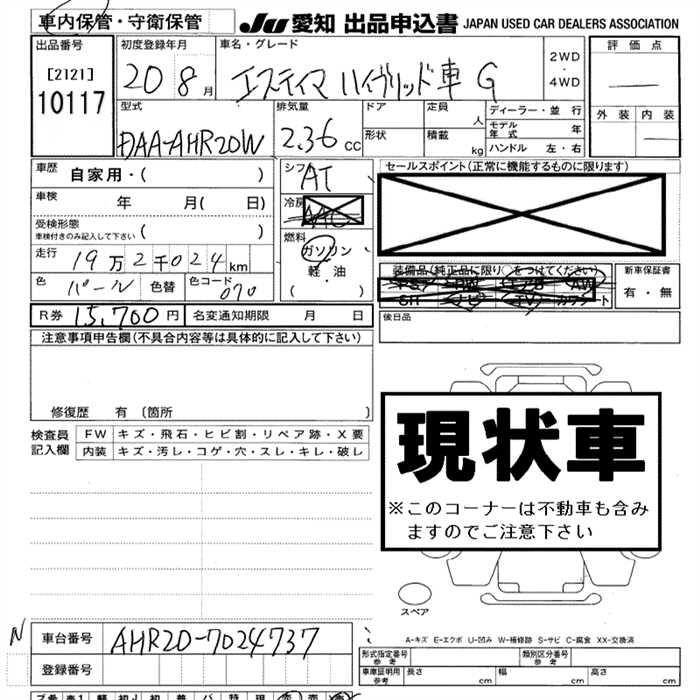 車内保管・守衛保管 JU 愛知 出品申込書 JAPAN USED CAR DEALERS ASSOCIATION
出品番号 初度登録年月 車名・グレード 評価点
[2121] 20 8月 エスティマ ハイブリッド車 G 2WD・4WD
10117
型式 排気量 ドア 定員 人 ディーラー・並行 外装 内装
DAA-AHR20W 2.36cc 形状 積載 kg モデル年式 年
ハンドル 左・右
車歴 自家用・( ) シフト AT セールスポイント(正常に機能するものに限ります)
車検 年 月( 日) 冷房 AAC
受検形態 車検付きのみ記入して下さい ( ) 燃料
走行 19万2千024km ガソリン 装備品(純正品に限り○をつけてください) 新車保証書
軽・油 PS PW エアB AW 有・無
色 パール 色替 色コード 070 (・) SR ナビ TV カワシート
R券 15,700円 名変通知期限 月 日 後日品
注意事項申告欄(不具合内容等は具体的に記入して下さい)
修復歴 有 [箇所 ]
検査員記入欄 FW キズ・飛石・ヒビ割・リペア跡・X要
内装 キズ・汚レ・コゲ・穴・スレ・キレ・破レ
現状車
※このコーナーは不動車も含み
ますのでご注意下さい
スペア
A-キズ E-エクボ U-凹み W-補修跡 S-サビ C-腐食 XX-交換済
N 車台番号 AHR20-7024737
登録番号
形式指定番号 参考 類別区分番号 参考
車庫証明用 参考 長さ cm 幅 cm 高さ cm